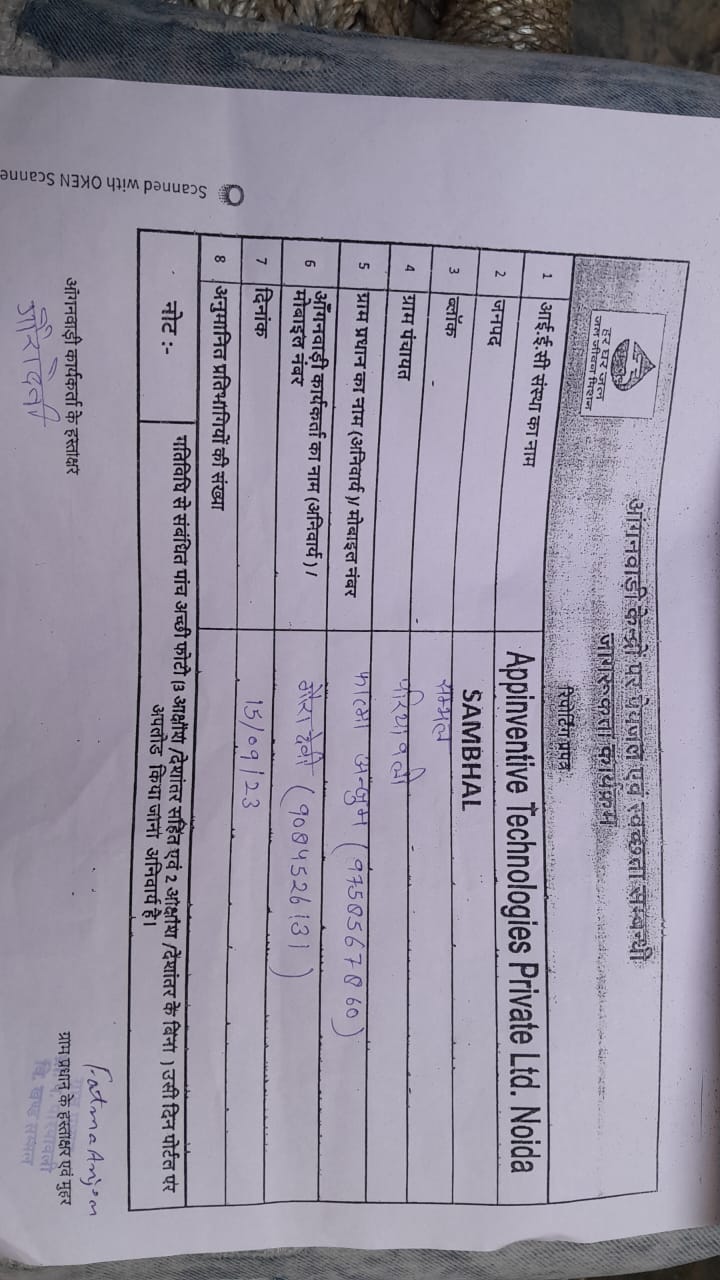 हर घर जल
जल जीवन मिशन
आंगनवाडी केन्द्रों पर पेयजल एवं स्वच्छता सम्बन्धी
जागरूकता कार्यक्रम
रिपोर्टिंग प्रपत्र
1 आई.ई.सी संस्था का नाम Appinventive Technologies Private Ltd. Noida
2 जनपद SAMBHAL
3 ब्लॉक सम्भल
4 ग्राम पंचायत
5 ग्राम प्रधान का नाम (अनिवार्य )/ मोबाइल नंबर फात्मा अन्जुम (9758567860)
6 आँगनवाड़ी कार्यकर्ता का नाम (अनिवार्य ) /
मोबाईल नंबर गौरा देवी (9084526131)
7 दिनांक 15/09/23
8 अनुमानित प्रतिभागियों की संख्या
नोट :- गतिविधि से संबंधित पांच अच्छी फोटो (3 अक्षांश /देशांतर सहित एवं 2 अक्षांश /देशांतर के बिना ) उसी दिन पोर्टल पर
अपलोड किया जाना अनिवार्य है।
Fatma Anjom
आंगनवाड़ी कार्यकर्ता के हस्ताक्षर ग्राम प्रधान के हस्ताक्षर एवं मुहर
गौरा देवी
वि. खण्ड सम्भल
Scanned with OKEN Scanne